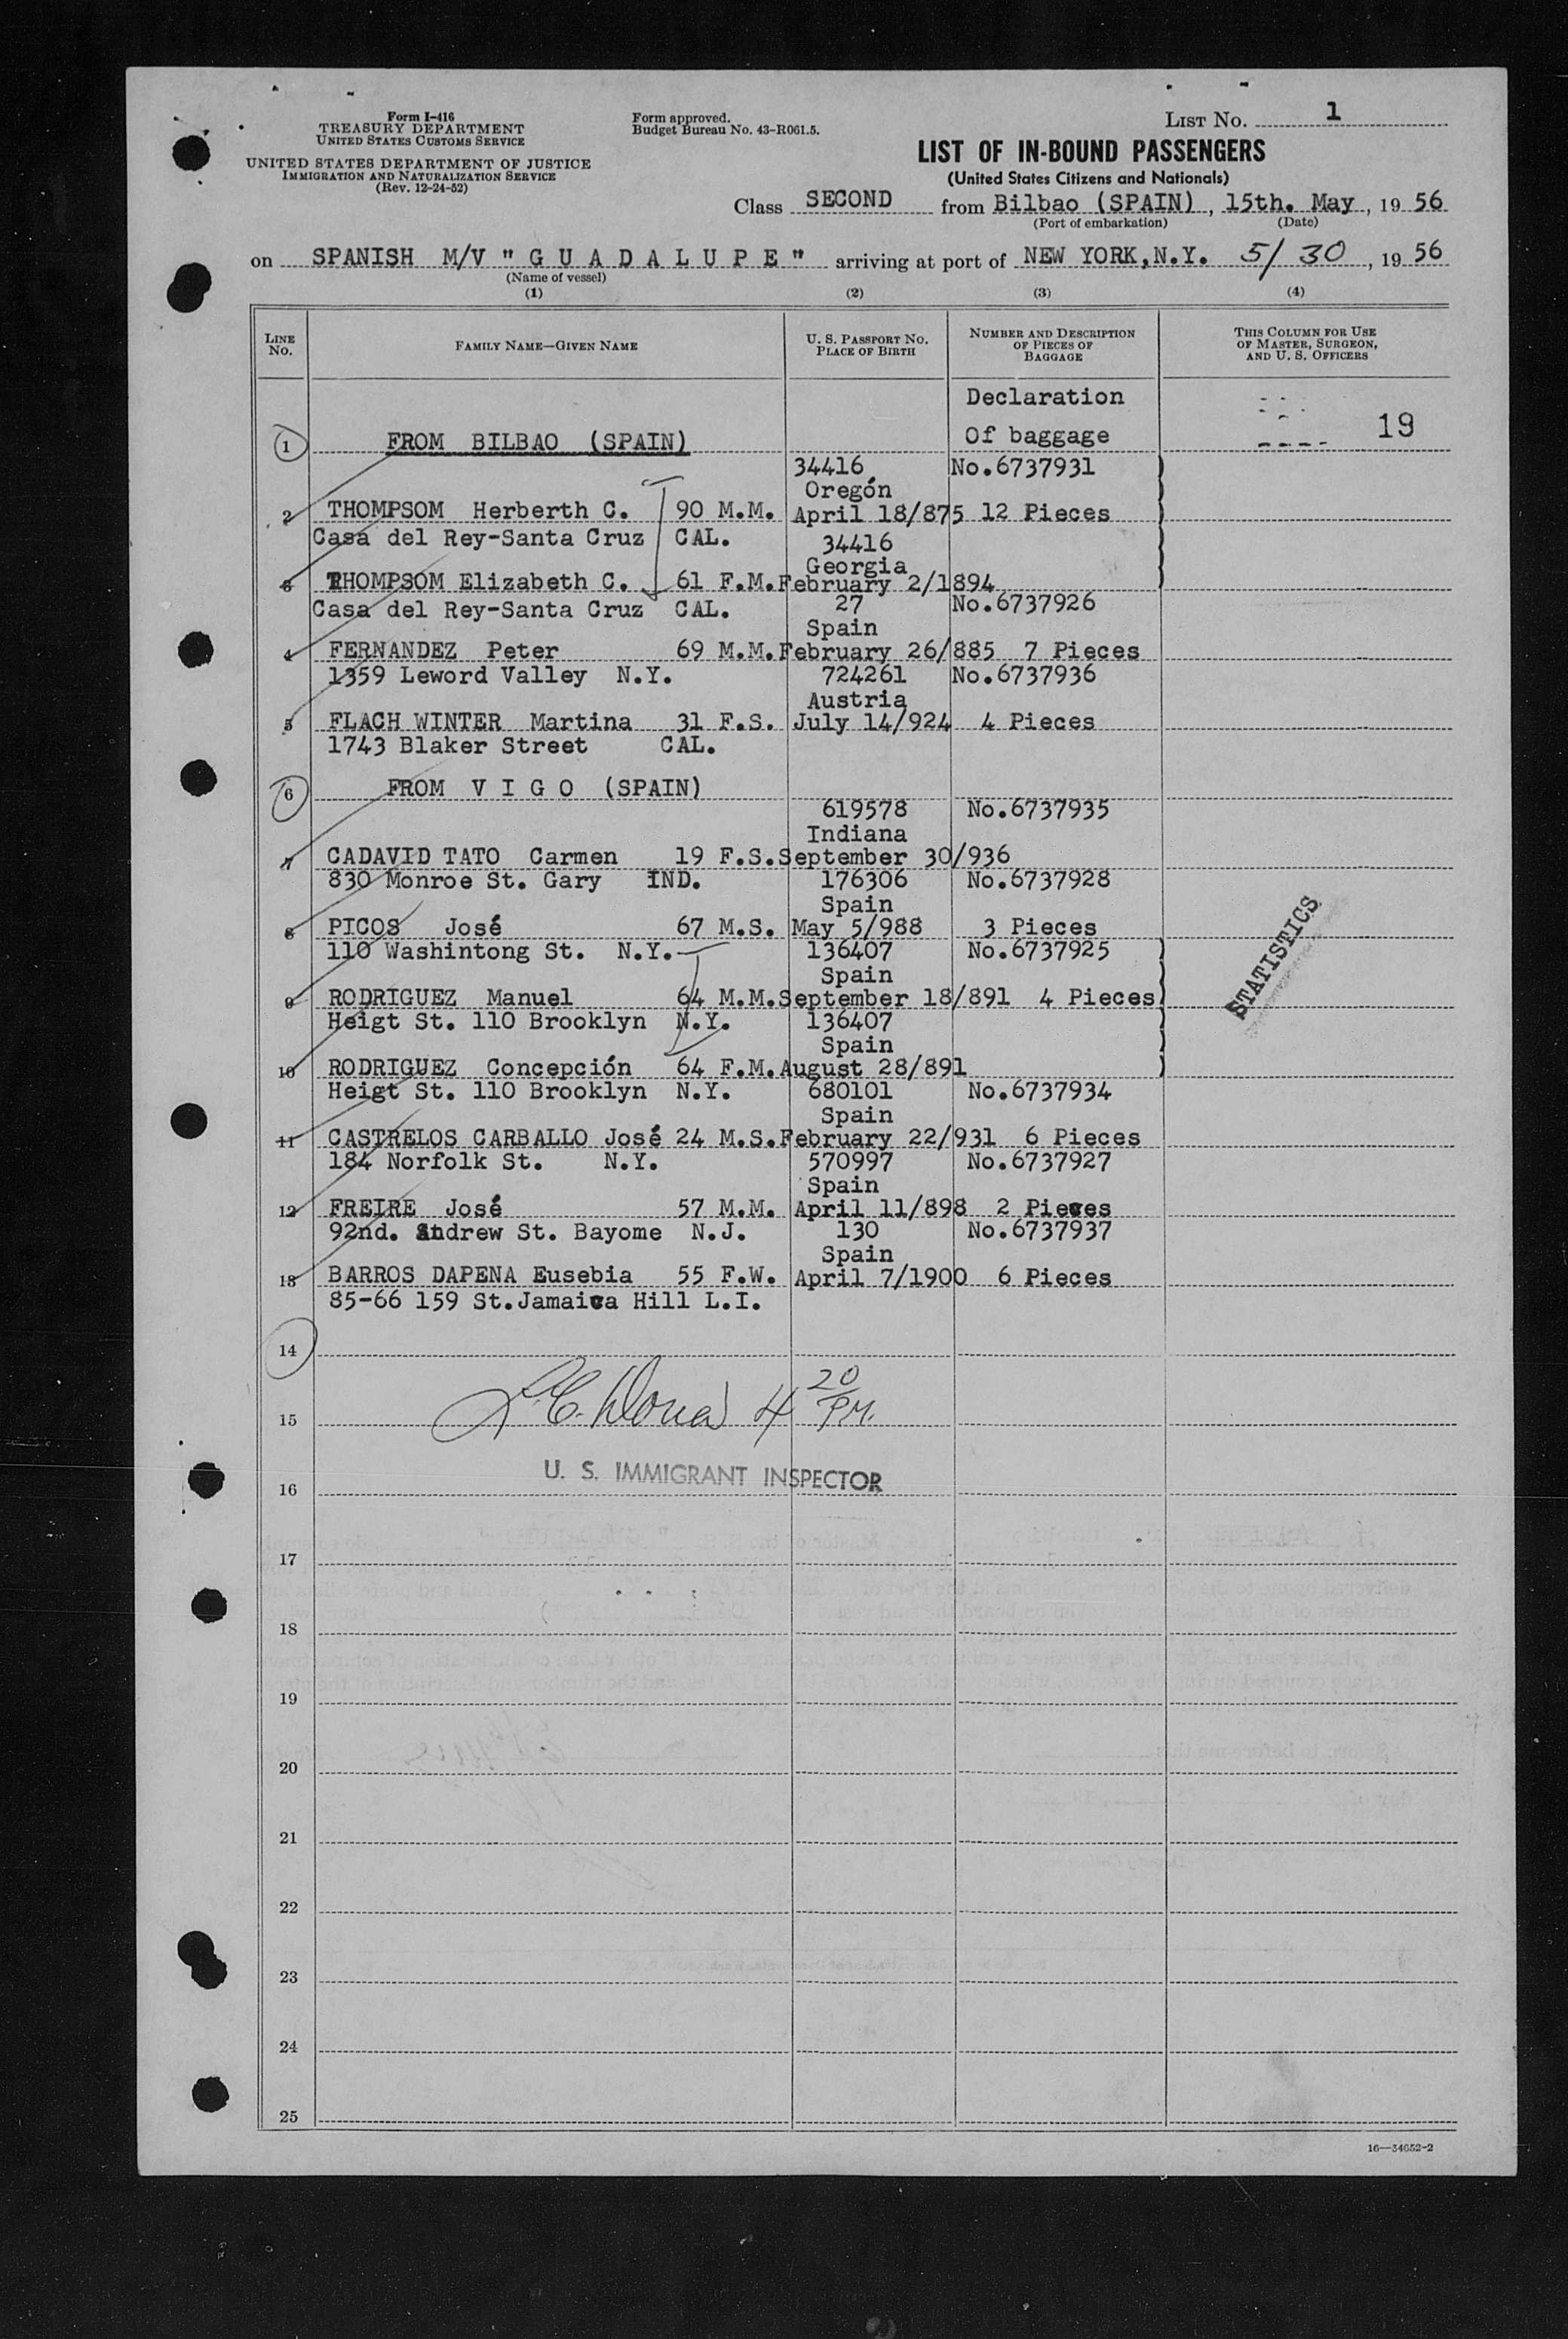 Form I-416
TREASURY DEPARTMENT
UNITED STATES CUSTOMS SERVICE
UNITED STATES DEPARTMENT OF JUSTICE
IMMIGRATION AND NATURALIZATION SERVICE
(Rev. 12-24-52)
Form approved.
Budget Bureau No. 43-R061.5.
LIST NO. 1
LIST OF IN-BOUND PASSENGERS
(United States Citizens and Nationals)
Class SECOND from Bilbao (SPAIN), 15th. May, 19 56
(Port of embarkation) (Date)
on SPANISH M/V " G U A D A L U P E " arriving at port of NEW YORK, N.Y. 5/ 30, 19 56
(Name of vessel)
(1) (2) (3) (4)
LINE NO. FAMILY NAME—GIVEN NAME U. S. PASSPORT NO. PLACE OF BIRTH NUMBER AND DESCRIPTION OF PIECES OF BAGGAGE THIS COLUMN FOR USE OF MASTER, SURGEON, AND U. S. OFFICERS
Declaration
1 FROM BILBAO (SPAIN) Of baggage 19
34416 No.6737931
Oregón
2 THOMPSOM Herberth C. 90 M.M. April 18/875 12 Pieces
Casa del Rey-Santa Cruz CAL. 34416
Georgia
3 THOMPSOM Elizabeth C. 61 F.M. February 2/1894
Casa del Rey-Santa Cruz CAL. 27 No.6737926
Spain
4 FERNANDEZ Peter 69 M.M. February 26/885 7 Pieces
1359 Leword Valley N.Y. 724261 No.6737936
Austria
5 FLACH WINTER Martina 31 F.S. July 14/924 4 Pieces
1743 Blaker Street CAL.
6 FROM V I G O (SPAIN)
619578 No.6737935
Indiana
7 CADAVID TATO Carmen 19 F.S. September 30/936
830 Monroe St. Gary IND. 176306 No.6737928
Spain
8 PICOS José 67 M.S. May 5/988 3 Pieces
110 Washintong St. N.Y. 136407 No.6737925
Spain
9 RODRIGUEZ Manuel 64 M.M. September 18/891 4 Pieces
Heigt St. 110 Brooklyn N.Y. 136407
Spain
10 RODRIGUEZ Concepción 64 F.M. August 28/891
Heigt St. 110 Brooklyn N.Y. 680101 No.6737934
Spain
11 CASTRELOS CARBALLO José 24 M.S. February 22/931 6 Pieces
184 Norfolk St. N.Y. 570997 No.6737927
Spain
12 FREIRE José 57 M.M. April 11/898 2 Pieces
92nd. Andrew St. Bayome N.J. 130 No.6737937
Spain
13 BARROS DAPENA Eusebia 55 F.W. April 7/1900 6 Pieces
85-66 159 St. Jamaica Hill L.I.
STATISTICS
14
15 4 20 PM.
U. S. IMMIGRANT INSPECTOR
16
17
18
19
20
21
22
23
24
25
16—34652-2